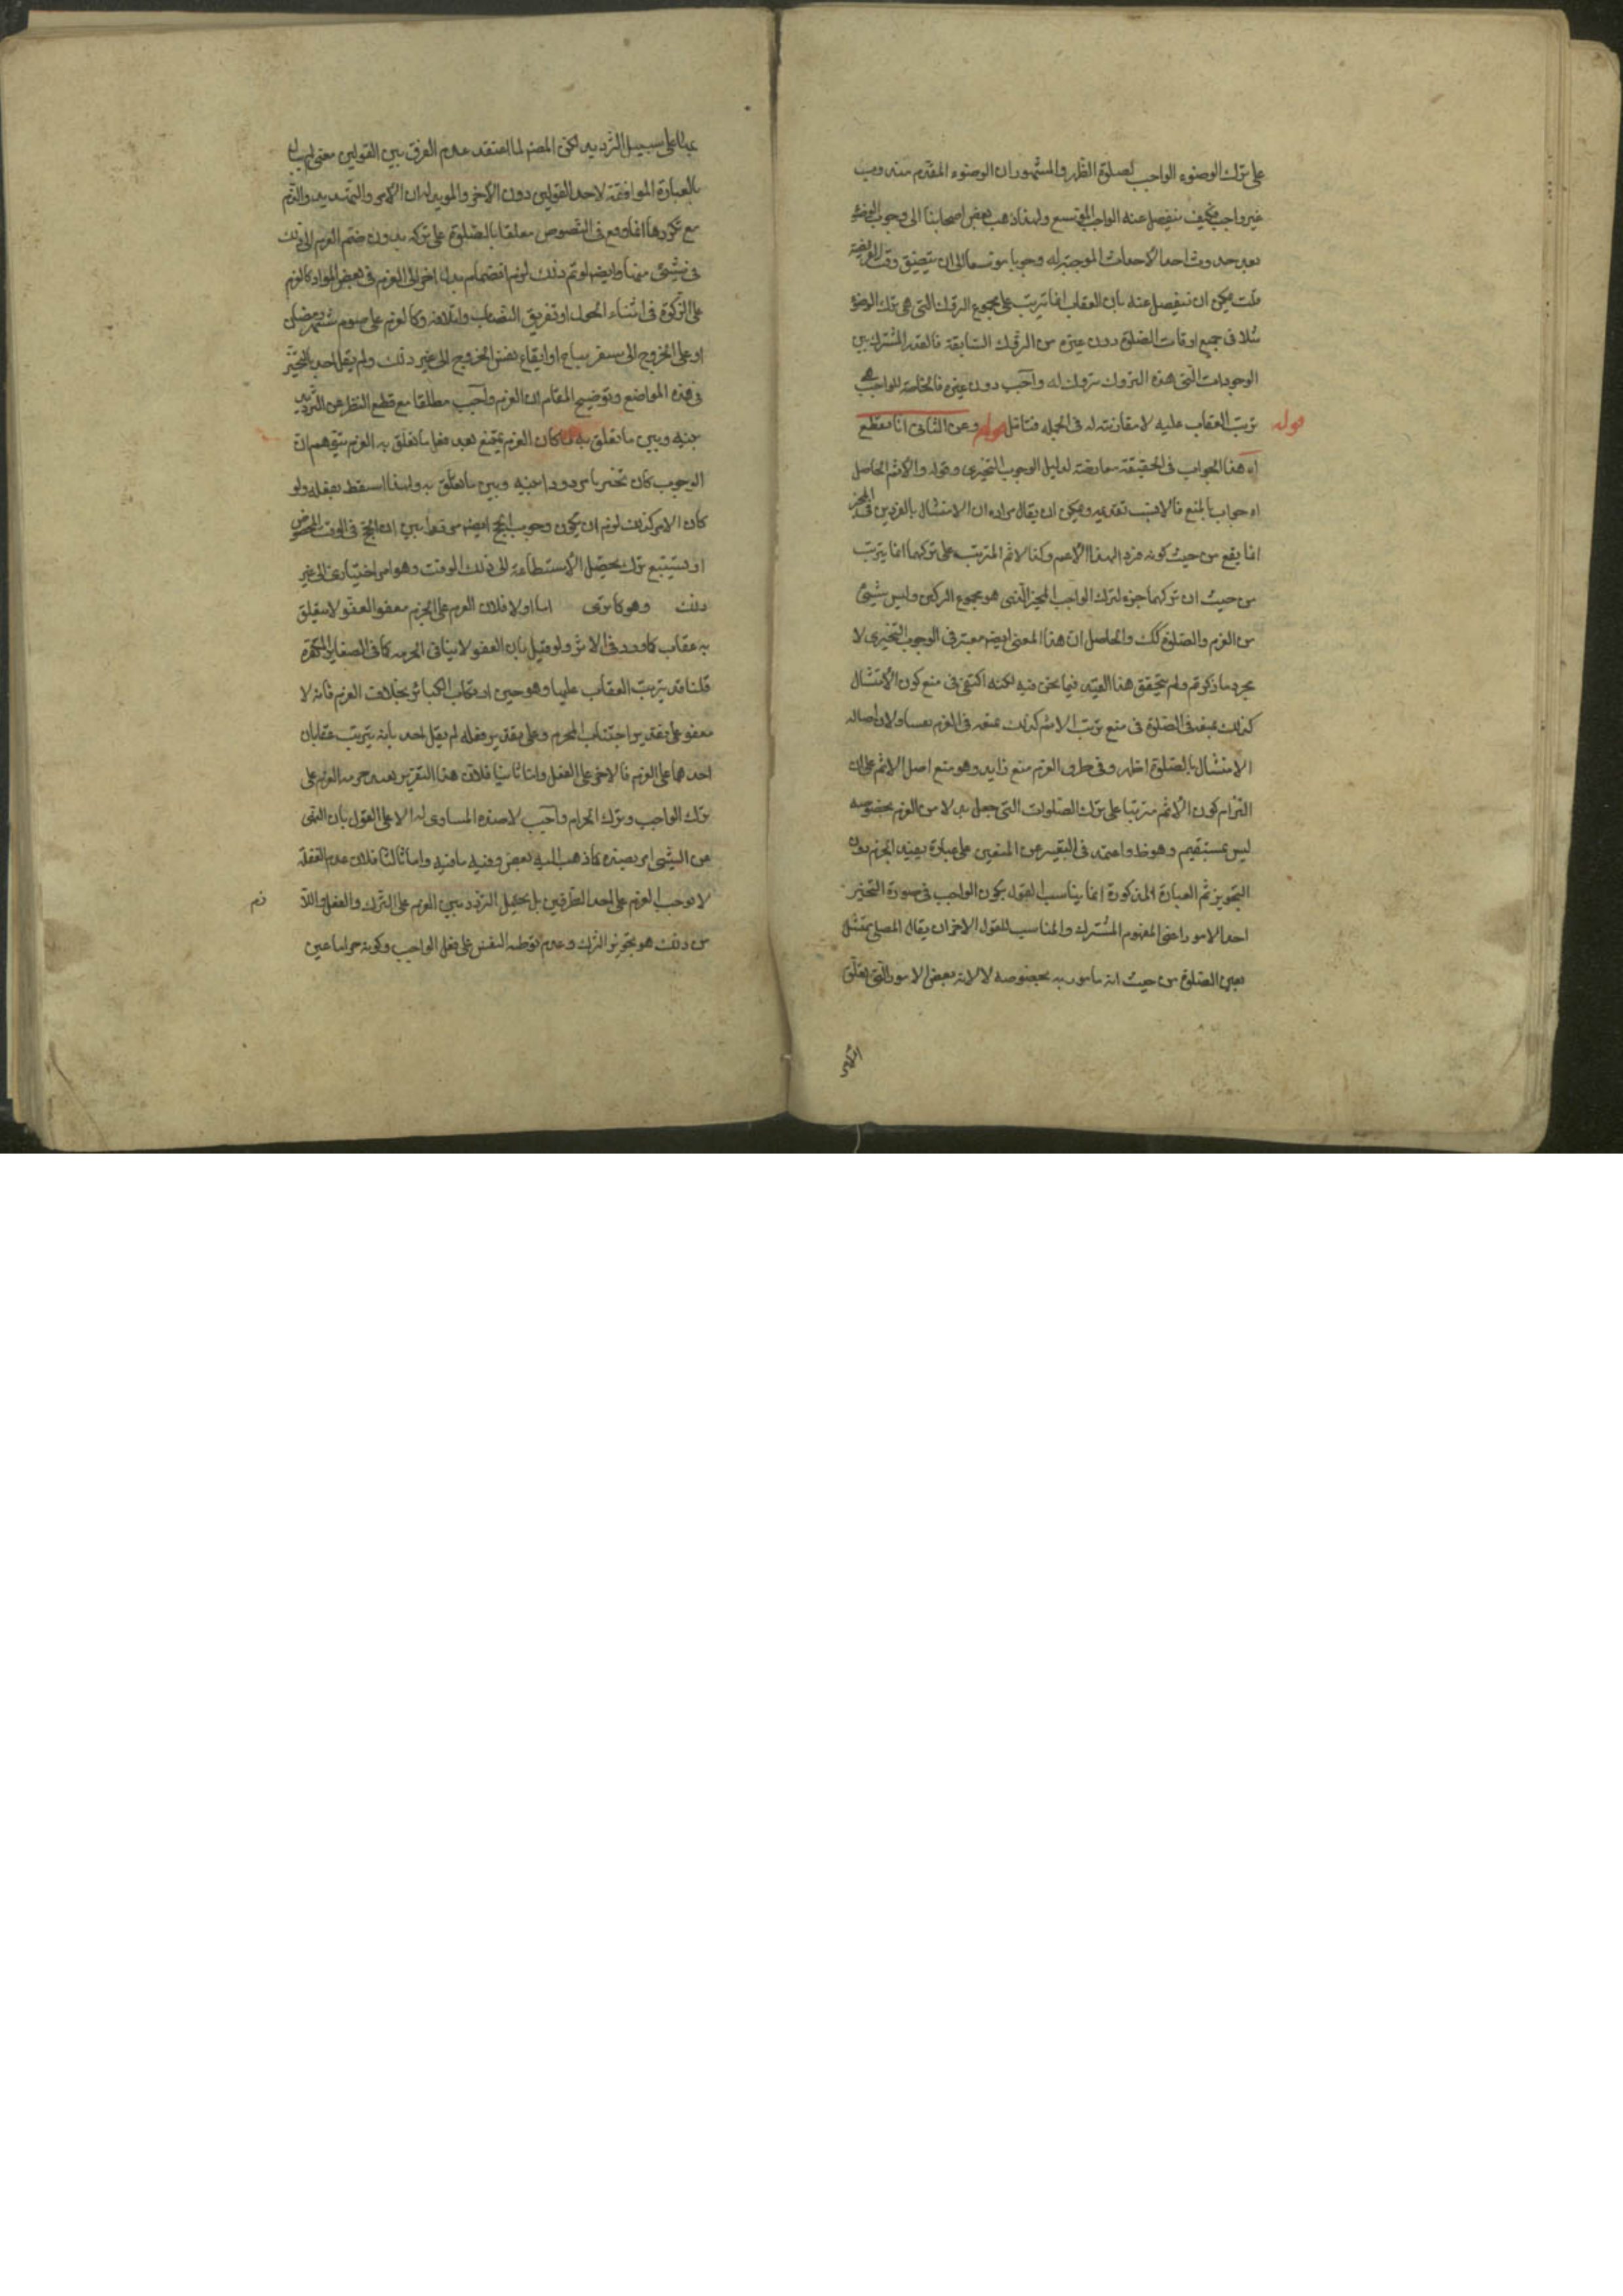 على ترك الوضوء الواجب لصلوة الظهر والمشهور ان الوضوء المقدم منه وصف
غير واجب فكيف ينفصل عنه الواجب الموسع ولهذا ذهب بعض اصحابنا الى وجوب الوضوء
بعد حدوث احد الاحداث الموجبة له وجوبا موسعا الى ان يتضيق وقت الفريضة
قلت يمكن ان ينفصل عنه بان العقاب انما يترتب على مجموع التروك التى هى ترك الوضوء
مثلا فى جميع اوقات الصلوة دون غيره من التروك السابقة فالقدر المشترك بين
الوجودات التى هذه التروك تروك له واجب دون غيره فالخاصة للواجب هى
قوله ترتب العقاب عليه لا مقارنته له فى الجملة فتأمل قوله وعن الثانى انا نقطع
اه هذا الجواب فى الحقيقة معارضة لدليل الوجوب التخييرى وقوله والاثم الحاصل
اه جواب بالمنع فالانسب تقديمه ويمكن ان يقال مراده ان الامتثال بالفردين فى المخير
انما يقع من حيث كونه فردا لهذا الاعم وكذا الاثم المترتب على تركهما انما يترتب
من حيث ان تركهما جزء لترك الواجب المخير الذى هو مجموع التركين وليس شيئ
من العزم والصلوة كك والحاصل ان هذا المعنى ايضا معتبر فى الوجوب التخييرى لا
مجرد ما ذكرتم ولم يتحقق هذا القيد فيما نحن فيه لكنه اكتفى فى منع كون الامتثال
كذلك بمنعه فى الصلوة فى منع ترتب الاثم كذلك بمنعه فى العزم ولان اصالة
الامتثال بالصلوة اظهر وفى طرف العزم منع زايد وهو منع اصل الاثم على ان
التزام كون الاثم مترتبا على ترك الصلوات التى جعل بدلا من العزم بخصوصه
ليس بمستقيم وهو ظ واعتمد فى التفسير عن المتعين على عبارة يفيد الجزم دون
التجويز ثم العبارة المذكورة انما يناسب القول بكون الواجب فى صورة التخيير
احد الامور اعنى المفهوم المشترك والمناسب للقول الاخر ان يقال المصلى يمتثل
بعين الصلوة من حيث انه مأمور به بخصوصه لا لانه بعض الامور التى يتعلق
على سبيل الترديد لكن المصنف لما اعتقد عدم الفرق بين القولين معنى لم يبال
بالعبارة الموافقة لاحد القولين دون الاخر والمويد له ان الامر والتهديد والذم
مع تكررها انما وقع فى النصوص معلقا بالصلوة على تركه بدون ضم العزم الى ذلك
فى شيئ منها وايضا لو تم ذلك لزم انضمام بدل اخر الى العزم فى بعض المواد كالعزم
على الزكوة فى اثناء الحول او تفريق النصاب واتلافه وكالعزم على صوم شهر رمضان
او على الخروج الى سفر مباح او ايقاع نفس الخروج الى غير ذلك ولم يقل احد بالتخيير
فى هذه المواضع وتوضيح المقام ان العزم واجب مطلقا مع قطع النظر عن الترديد
بينه وبين ما تعلق به لما كان العزم يمتنع بعد فعل ما تعلق به العزم يتوهم ان
الوجوب كان تخييريا مرددا بينه وبين ما تعلق به ولهذا اسقط بفعله ولو
كان الامر كذلك لزم ان يكون وجوب الحج ايضا مرددا بين ان الحج فى الوقت المخصوص
او يستتبع ترك تحصيل الاستطاعة الى ذلك الوقت وهو امر اختيارى الى غير
ذلك وهو كما ترى اما اولا فلان العزم على المحرم معفو العفو لا يتعلق
به عقاب كما ورد فى الاثر ولو قيل بان العفو لا ينافى الحرمة كما فى الصغاير المكفرة
قلنا قد يترتب العقاب عليها وهو حين ارتكاب الكبائر بخلاف العزم فانه لا
معفو على تقدير اجتناب المحرم وعلى تقدير فعله لم يقل احد بانه يترتب عقابان
احدهما على العزم والاخر على الفعل واما ثانيا فلان هذا التقرير يفيد حرمة العزم على
ترك الواجب وترك الحرام واجب لا ضده المساوى له الا على القول بان النهى
عن الشيئ امر بضده كما ذهب اليه بعض وفيه ما فيه واما ثالثا فلان عدم الغفلة
لا يوجب العزم على احد الطرفين بل يحتمل التردد بين العزم على الترك والفعل واللا
زم
من ذلك هو تجويز الترك وعدم توطية النفس على فعل الواجب وكونه حراما عين